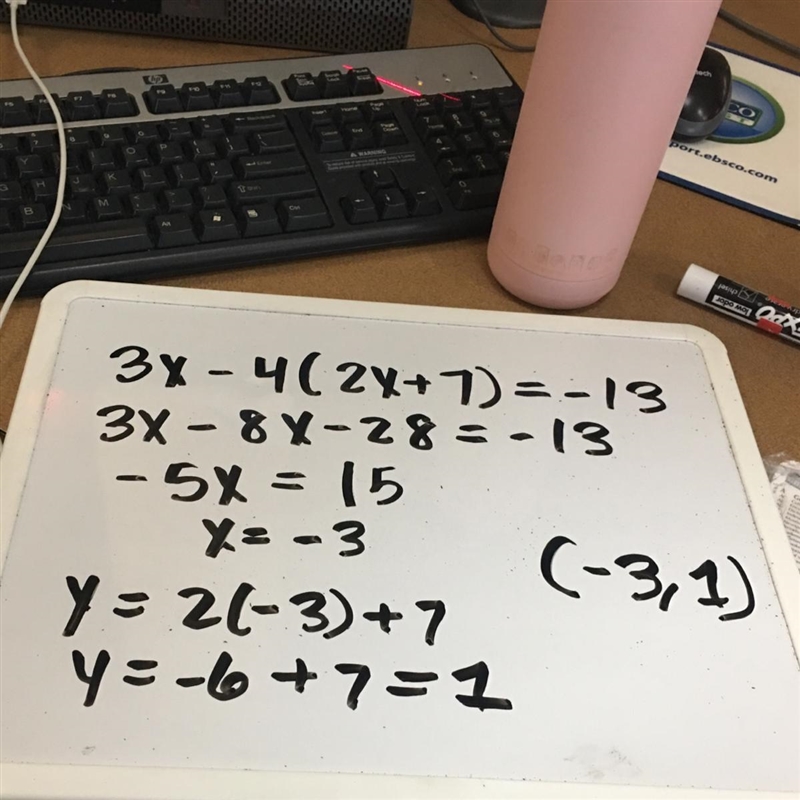 hp
WARNING
tech
EBSCO
port.ebsco.com
EXPO
low odor
chisel
3x - 4(2x+7) = -13
3x - 8x - 28 = -13
-5x = 15
x = -3
(-3,1)
y = 2(-3)+7
y = -6 + 7 = 1